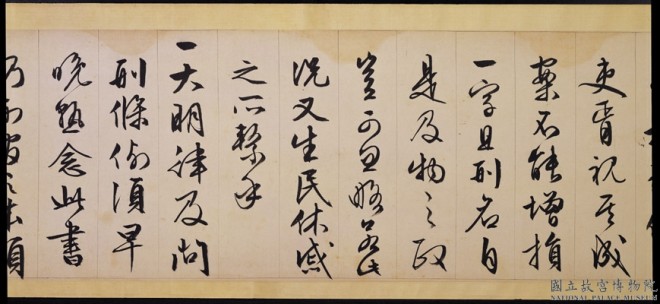 吏胥視其成
案不能增損
一字且刑名自
是及物之政
豈可忽略若此
況又生民休戚
之所繫乎
一大明律及問
刑條例須早
晚熟念此書
國立故宮博物院
NATIONAL PALACE MUSEUM